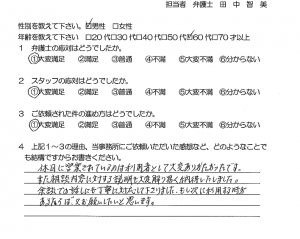 担当者 弁護士 田中智美
性別を教えて下さい。 ☑男性 □女性
年齢を教えて下さい □20代□30代□40代□50代☑60代□70才以上
1 弁護士の応対はどうでしたか。
①大変満足 ②満足 ③普通 ④不満 ⑤大変不満 ⑥分からない
2 スタッフの応対はどうでしたか。
①大変満足 ②満足 ③普通 ④不満 ⑤大変不満 ⑥分からない
3 ご依頼された件の進め方はどうでしたか。
①大変満足 ②満足 ③普通 ④不満 ⑤大変不満 ⑥分からない
4 上記1～3の理由、当事務所にご依頼いただいた感想など、どのようなことで
も結構ですからお書きください。
休日に営業されているのは利用者として大変ありがたかったです。
また相談内容に対する説明も大変解り易く納得いたしました。
余談でお話しにも丁寧に対応して下さりました。もし次に利用する時が
あるならば又お願いしたいと思います。